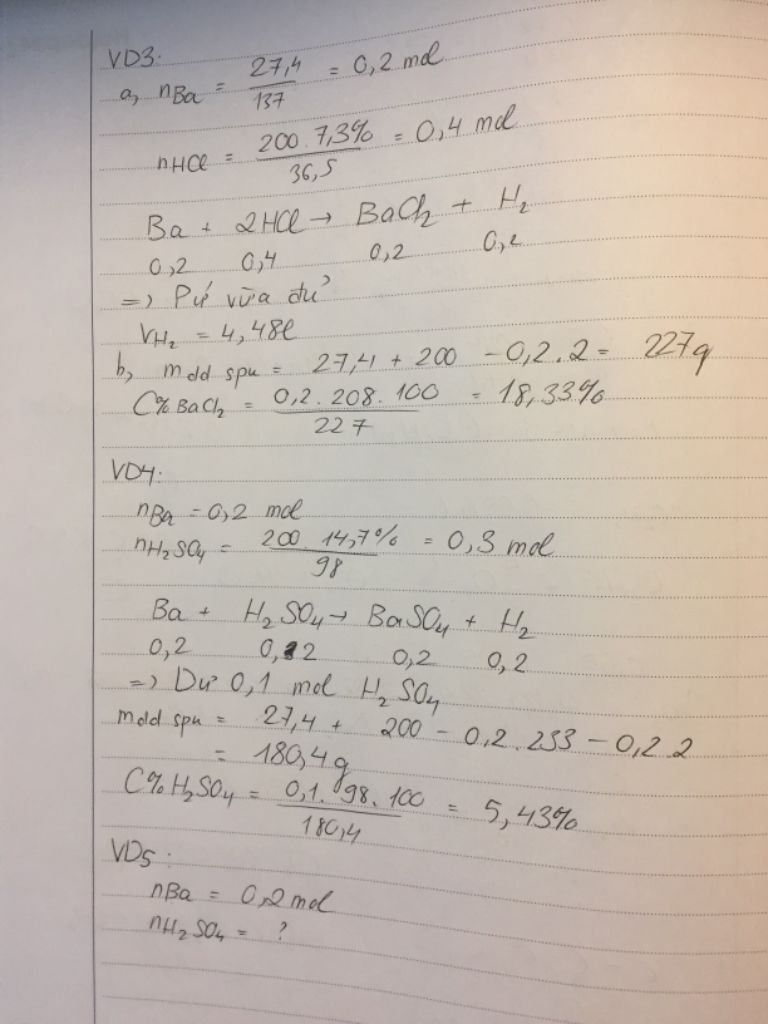 VD3:
a, nBa = 27,4 / 137 = 0,2 mol
nHCl = 200 . 7,3% / 36,5 = 0,4 mol
Ba + 2HCl → BaCl2 + H2
0,2 0,4 0,2 0,2
=> Pứ vừa đủ
VH2 = 4,48l
b, mdd spu = 27,4 + 200 - 0,2.2 = 227g
C% BaCl2 = 0,2.208.100 / 227 = 18,33%
VD4:
nBa = 0,2 mol
nH2SO4 = 200 . 14,7% / 98 = 0,3 mol
Ba + H2SO4 → BaSO4 + H2
0,2 0,2 0,2 0,2
=> Dư 0,1 mol H2SO4
mdd spu = 27,4 + 200 - 0,2.233 - 0,2.2
= 180,4g
C% H2SO4 = 0,1.98.100 / 180,4 = 5,43%
VD5:
nBa = 0,2 mol
nH2SO4 = ?